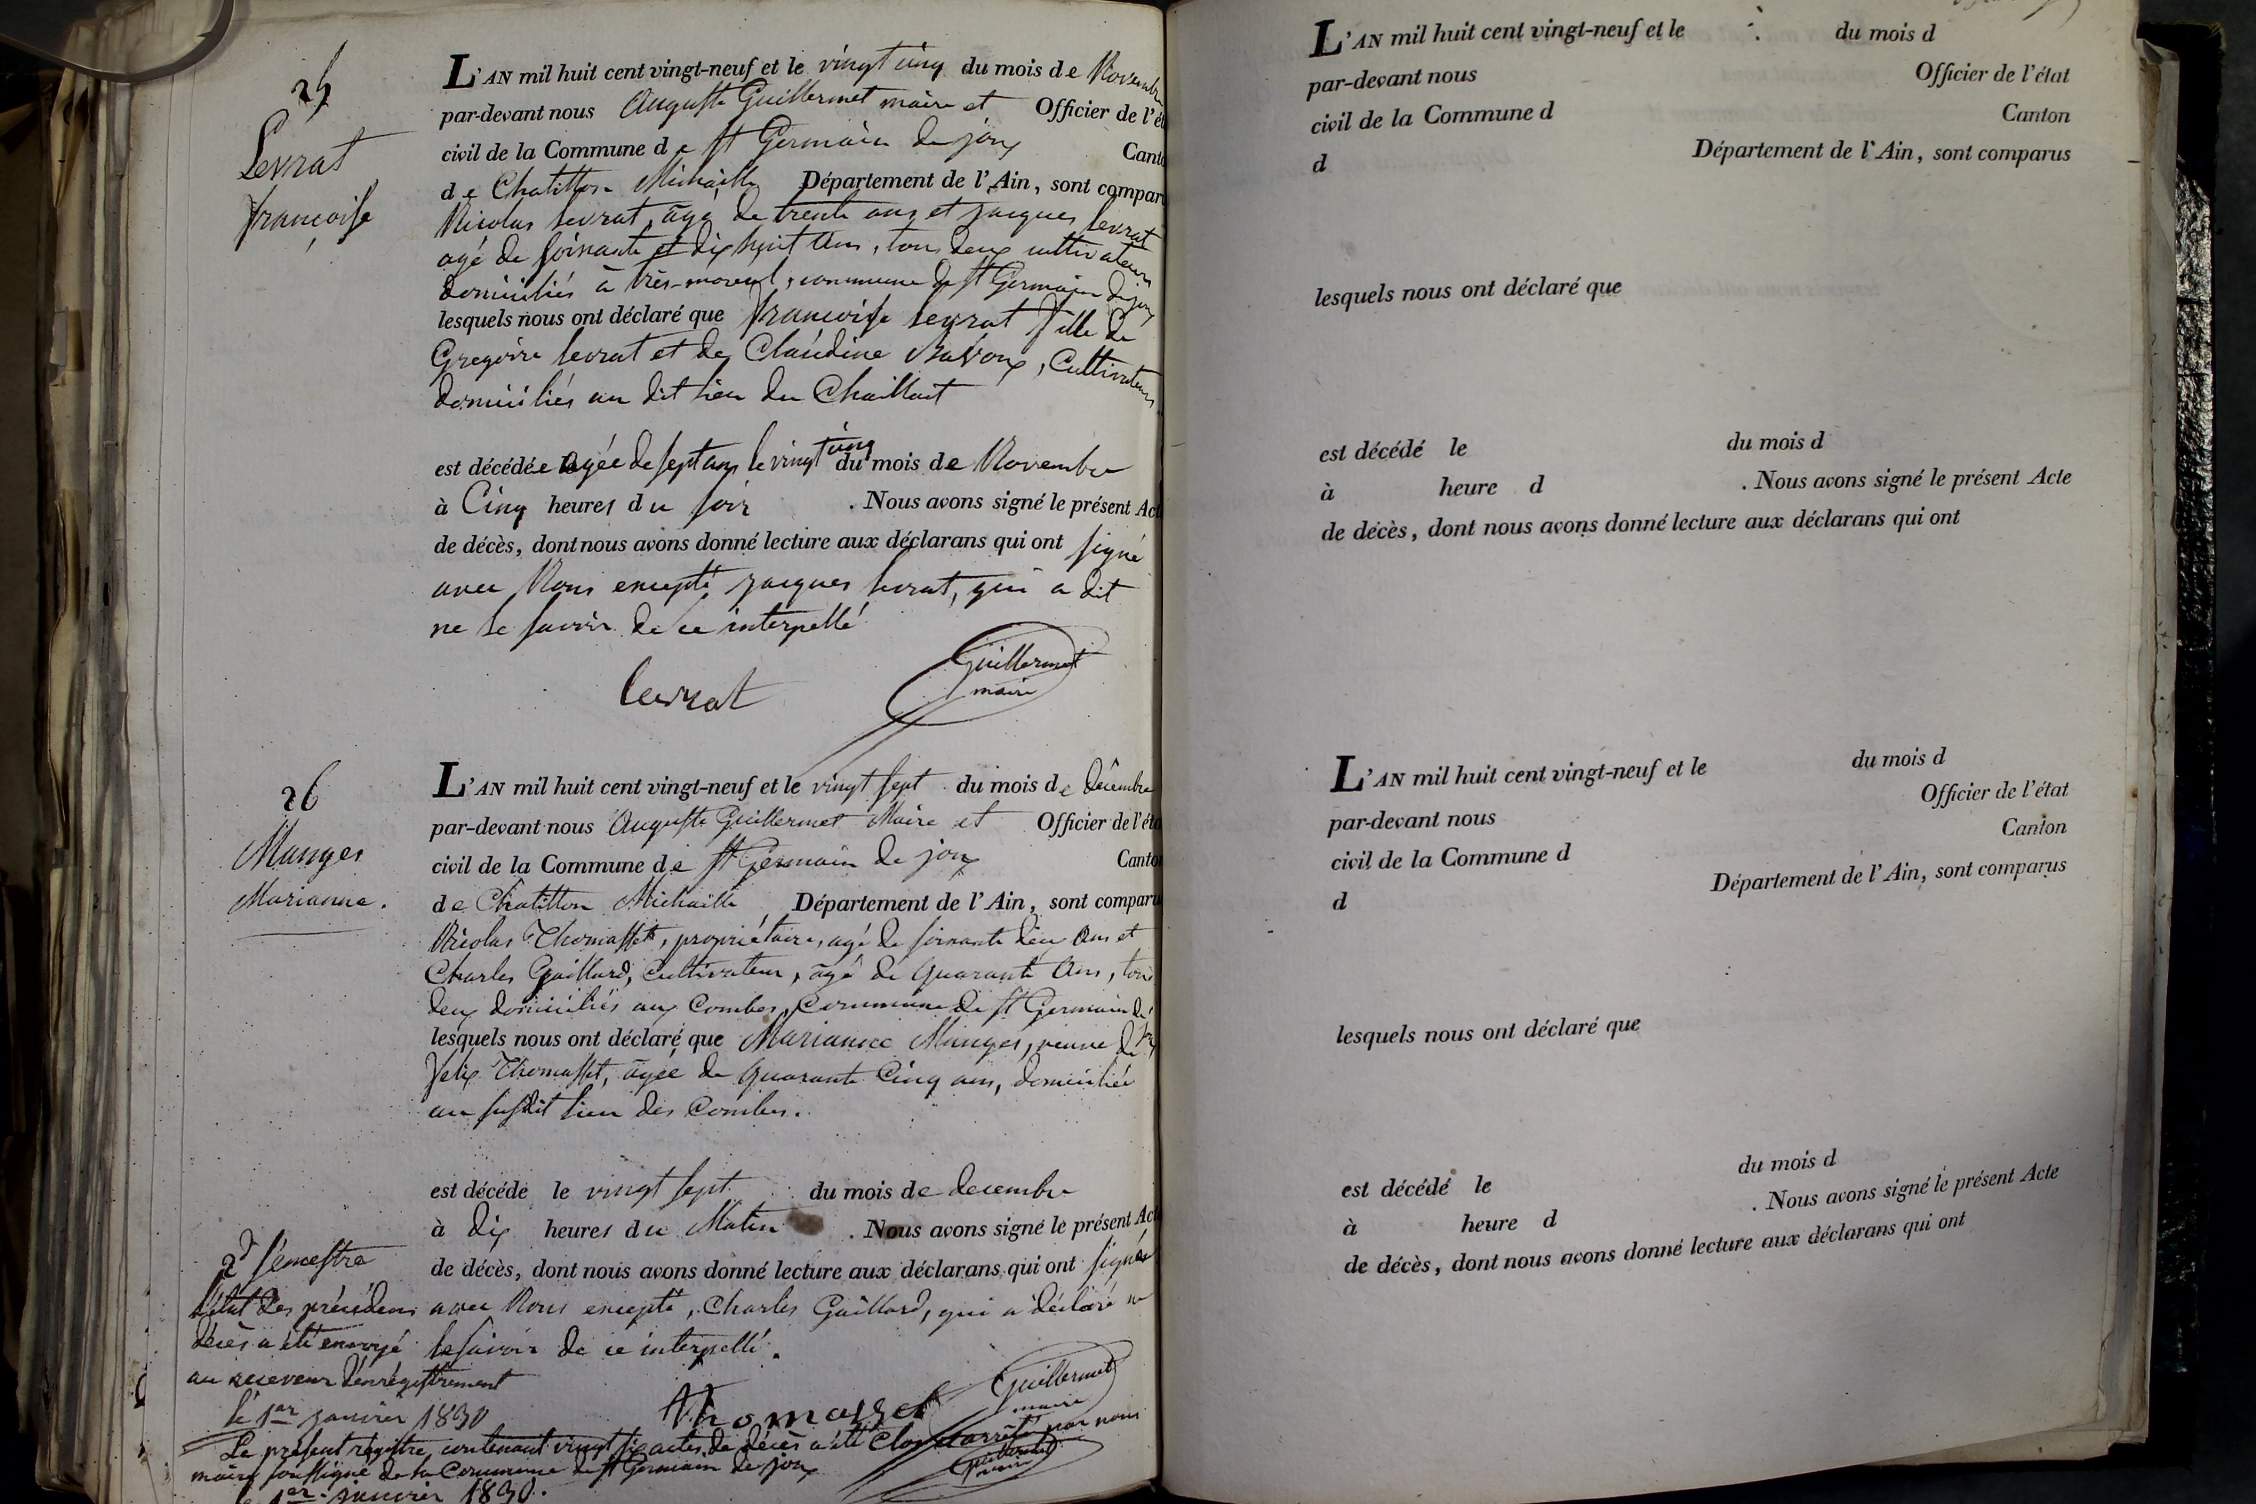 25
Levrat
françoise
L'AN mil huit cent vingt-neuf et le vingt cinq du mois de Novembre
par-devant nous Auguste Guillermet maire et Officier de l'ét
civil de la Commune de St Germain de joux Canto
de Chatillon Michaille Département de l'Ain, sont compar
Nicolas levrat, agé de trente ans et jacques levrat
agé de soixante et dix huit ans, tous deux cultivateurs
domiciliés à très-, commune de St Germain de joux
lesquels nous ont déclaré que françoise levrat fille de
Gregoire levrat et de Claudine , Cultivateurs
domiciliés au dit lieu du Chaillout
est décédée agée de sept ans le vingt cinq du mois de Novembre
à Cinq heures du soir . Nous avons signé le présent Act
de décès, dont nous avons donné lecture aux déclarans qui ont signé
avec Nous excepté jacques levrat, qui a dit
ne le savoir de ce interpellé
levrat
Guillermet
maire
26
Manges
Marianne.
L'AN mil huit cent vingt-neuf et le vingt sept du mois de Décembre
par-devant nous Auguste Guillermet Maire et Officier de l'éta
civil de la Commune de St Germain de joux Canton
de Chatillon Michaille Département de l'Ain, sont comparu
Nicolas Thomasset, propriétaire, agé de soixante deux ans et
Charles Gaillard, Cultivateur, agé de quarante ans, tous
deux domiciliés aux Combes, Commune de St Germain de joux
lesquels nous ont déclaré que Marianne Manges, veuve de
felix Thomasset, agée de quarante Cinq ans, domiciliée
au susdit lieu des Combes.
est décédé le vingt sept du mois de decembre
à dix heures du Matin . Nous avons signé le présent Act
de décès, dont nous avons donné lecture aux déclarans qui ont signé
avec Nous excepté, Charles Gaillard, qui a déclaré ne
le savoir de ce interpellé.
2d semestre
l'état des précédens
décès a été envoyé
au receveur d'enrégistrement
le 1er janvier 1830
Thomasset
Guillermet
maire
Le présent régistre contenant vingt six actes de décès a été Clos et arrêté par nous
maire soussigné de la Commune de St Germain de joux
1er janvier 1830.
Guillermet
maire
L'AN mil huit cent vingt-neuf et le du mois d
par-devant nous Officier de l'état
civil de la Commune d Canton
d Département de l'Ain, sont comparus
lesquels nous ont déclaré que
est décédé le du mois d
à heure d . Nous avons signé le présent Acte
de décès, dont nous avons donné lecture aux déclarans qui ont
L'AN mil huit cent vingt-neuf et le du mois d
par-devant nous Officier de l'état
civil de la Commune d Canton
d Département de l'Ain, sont comparus
lesquels nous ont déclaré que
est décédé le du mois d
à heure d . Nous avons signé le présent Acte
de décès, dont nous avons donné lecture aux déclarans qui ont